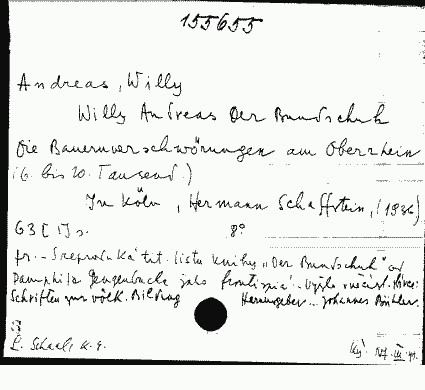 155655
Andreas, Willy
Willy Andreas Der Bundschuh
Die Bauernverschwörungen am Oberrhein
(6. bis 20. Tausend.)
In Köln, Hermann Schaffstein, (1936)
63 [1] s. 8°
fr. - S reprodukcí tit. listu knihy "Der Bundschuh" od
Pamphila Gengenbacha jako frontispic.
Schriften zur völk. Bildung Herausgeber .. Johannes Bühler.